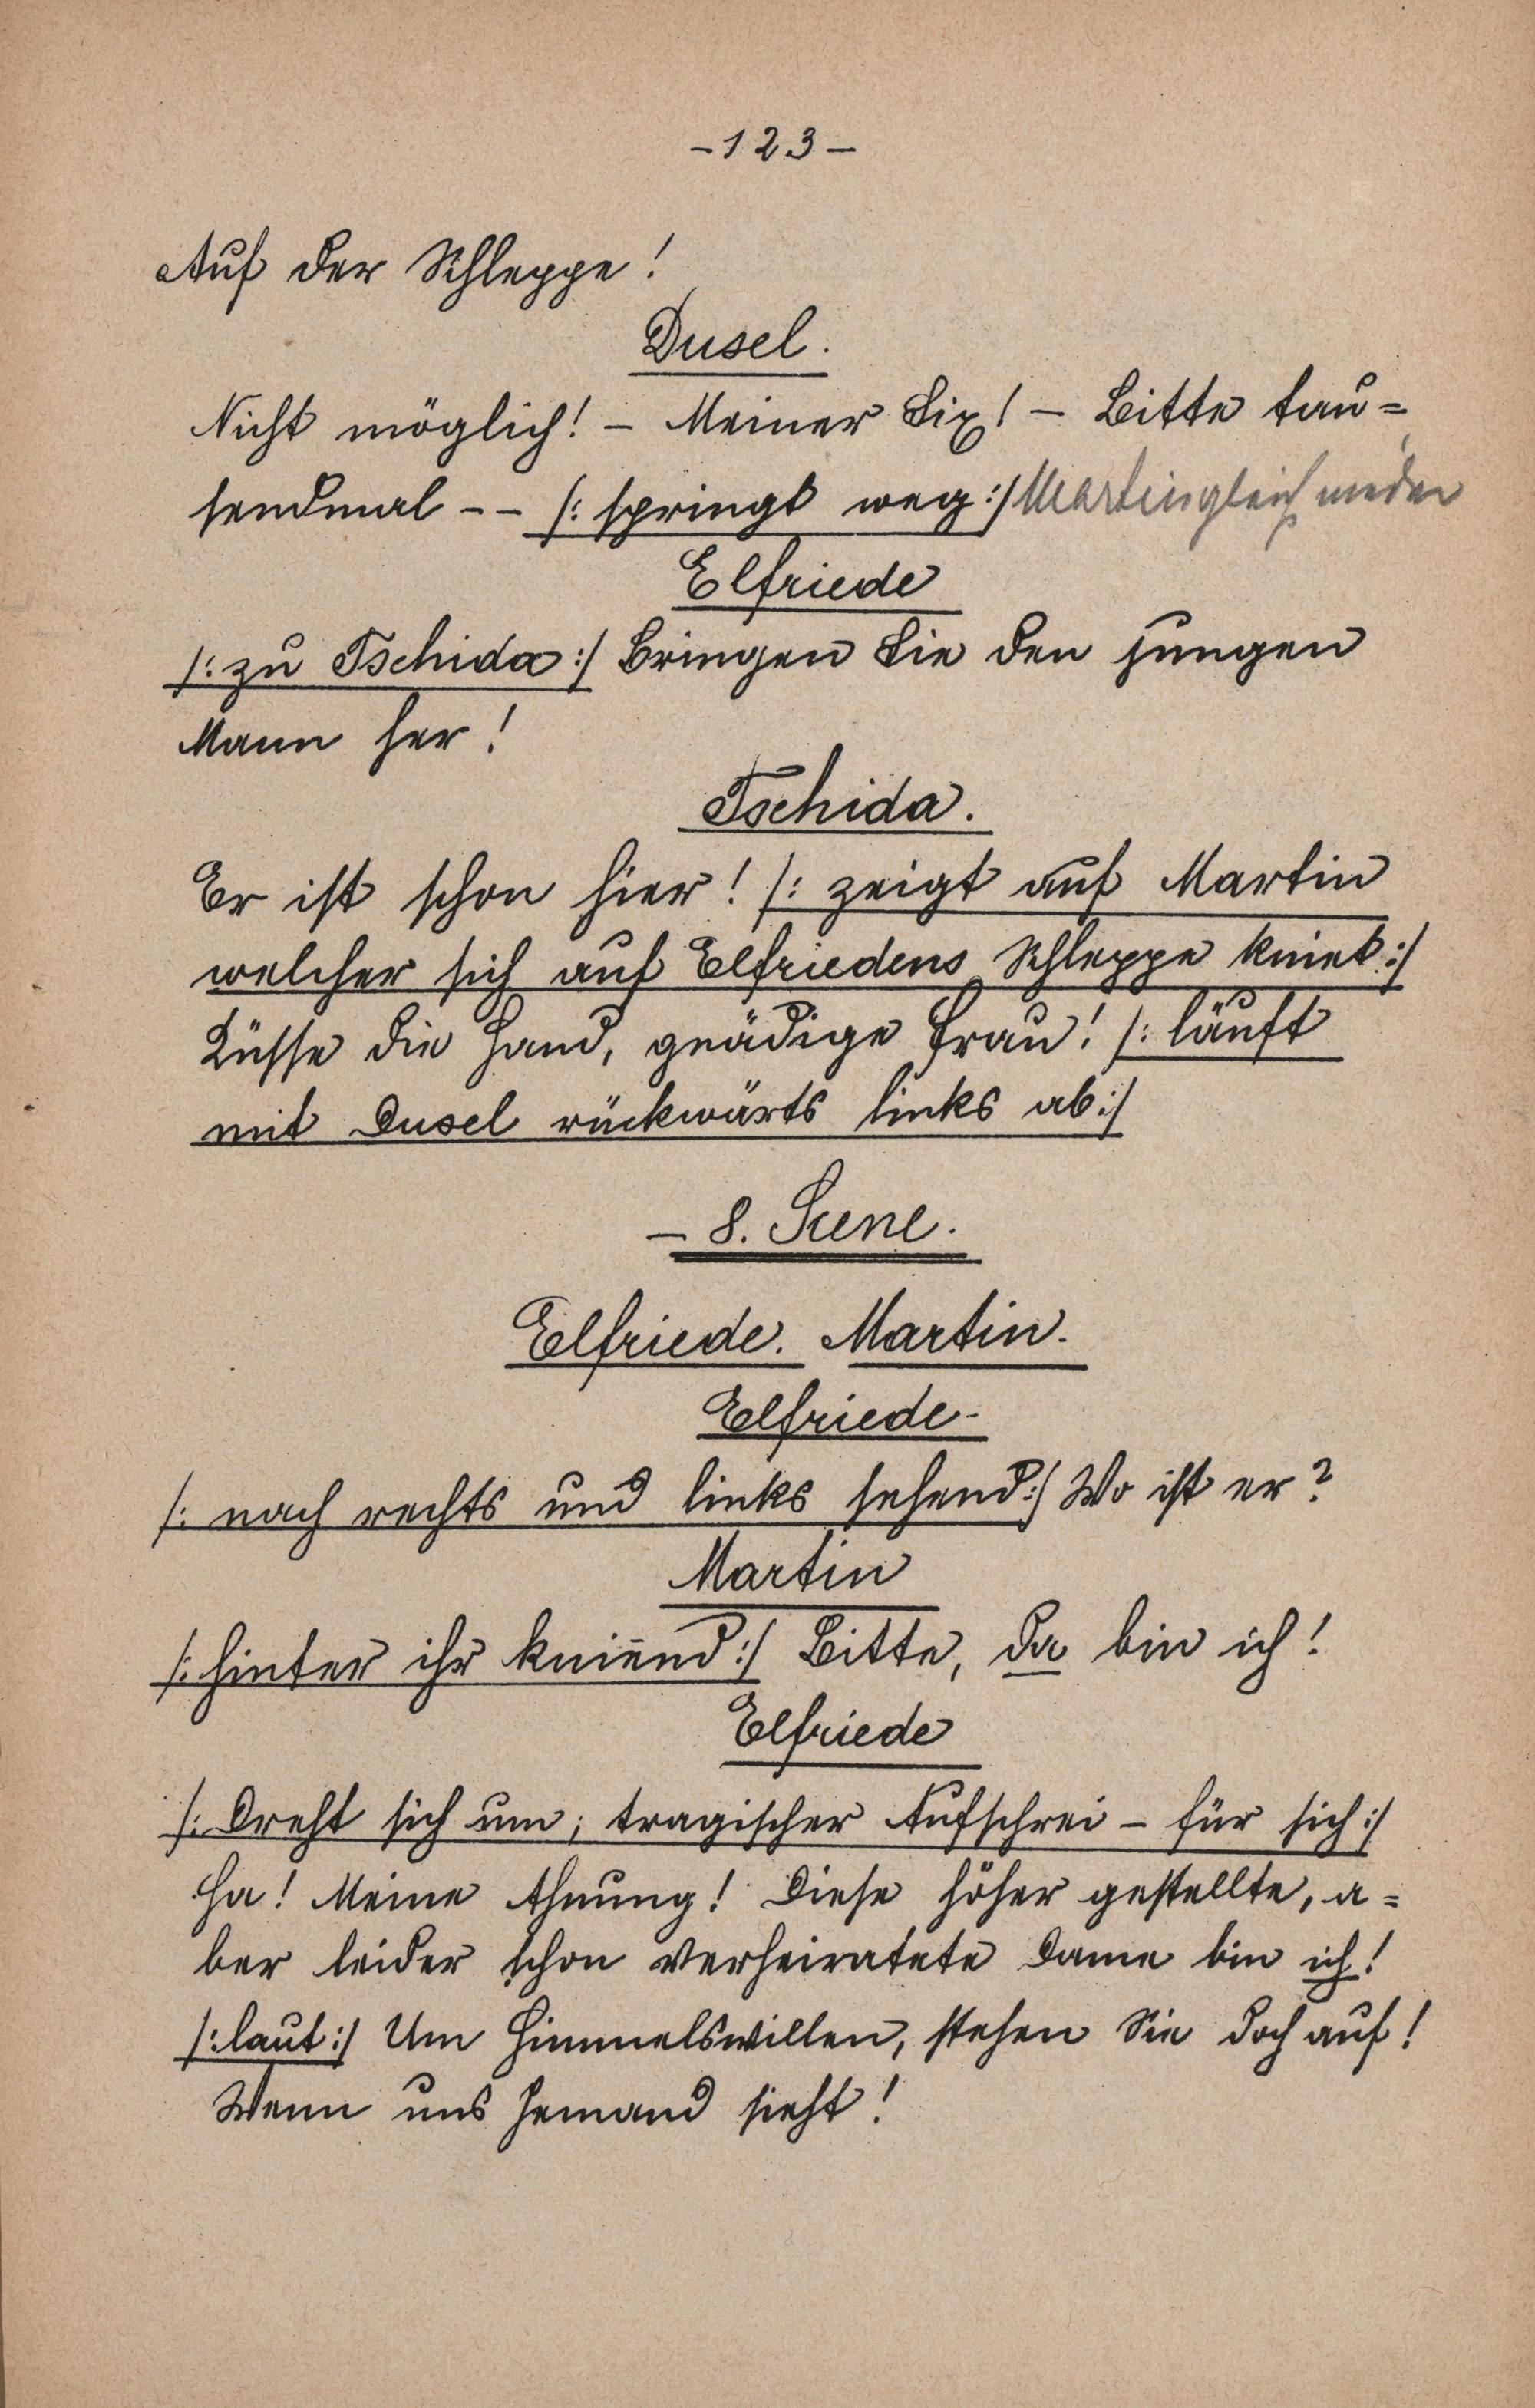 -123-
Auf der Schleppe!
Dusel.
Nicht möglich! - Meiner Six! - Bitte tau=
sendmal -- /: springt weg :/ Martin gleich nieder
Elfriede
/: zu Tschida :/ Bringen Sie den jungen
Mann her!
Tschida.
Er ist schon hier! /: zeigt auf Martin
welcher sich auf Elfriedens Schleppe kniet :/
Küsse die Hand, gnädige Frau! /: läuft
mit Dusel rückwärts links ab :/
- 8. Scene.
Elfriede. Martin.
Elfriede-
/: nach rechts und links sehend :/ Wo ist er?
Martin
/: hinter ihr kniend :/ Bitte, da bin ich!
Elfriede
/: Dreht sich um; tragischer Aufschrei - für sich :/
Ha! Meine Ahnung! Diese höher gestellte, a=
ber leider schon verheiratete Dame bin ich!
/: laut :/ Um Himmelswillen, stehen Sie doch auf!
Wenn uns Jemand sieht!